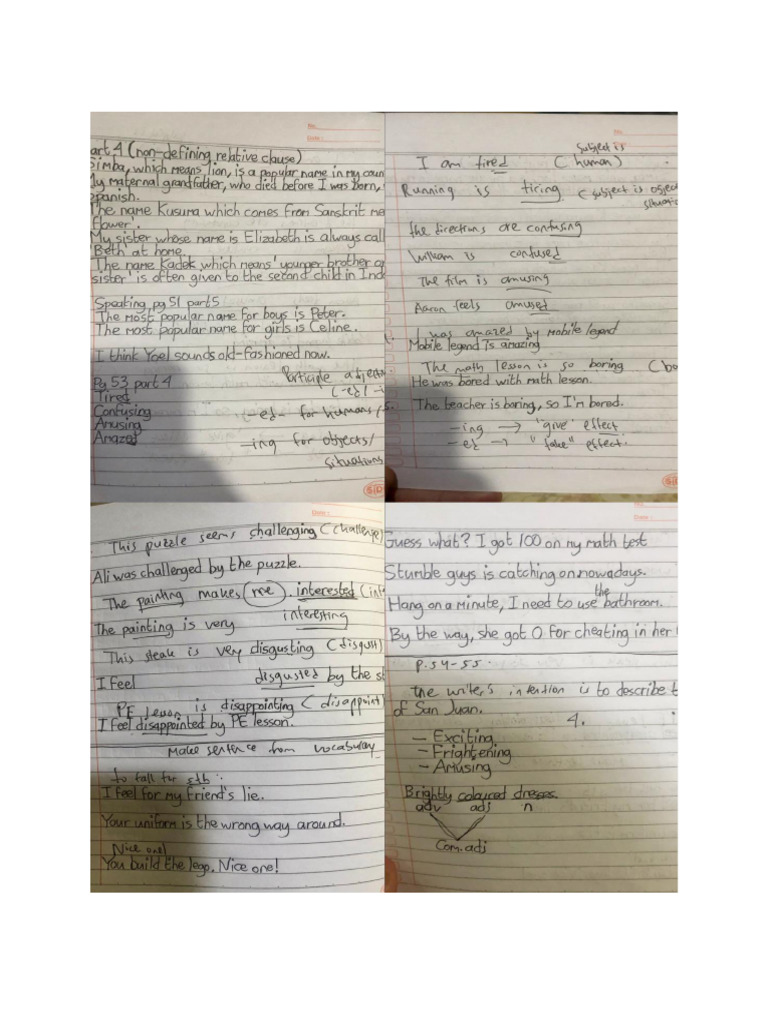 No.
Date :
art 4 (non-defining relative clause)
Simba, which means lion, is a popular name in my coun
My maternal grandfather, who died before I was born,
Spanish.
The name Kusuma which comes from Sanskrit me
flower'.
My sister whose name is Elizabeth is always call
'Beth' at home.
The name Kadek which means 'younger brother o
sister' is often given to the second child in Ind
Speaking pg 51 part 5
The most popular name for boys is Peter.
The most popular name for girls is Celine.
I think Yoel sounds old-fashioned now.
Pg 53 part 4
Participle adject
Tired
(-ed/-i
Confusing
-ed- for humans/s.
Amusing
Amazed
-ing for objects/
situations
SiDU
No.
Date :
subject is
I am tired (human)
Running is tiring (subject is object
situatio
the directions are confusing
William is confused
The film is amusing
Aaron feels amused
I was amazed by mobile legend
Mobile legend is amazing
The math lesson is so boring (bo
He was bored with math lesson.
The teacher is boring, so I'm bored.
-ing → "give" effect
-ed → "take" effect.
SiD
Date :
This puzzle seems challenging (challenge)
Ali was challenged by the puzzle.
The painting makes me interested (int
The painting is very interesting
This steak is very disgusting (disgust)
I feel disgusted by the st
PE lesson is disappointing (disappoint)
I feel disappointed by PE lesson.
Make sentence from vocabulary
to fall for sth :
I feel for my friend's lie.
Your uniform is the wrong way around.
Nice one!
You build the lego. Nice one!
No.
Date :
Guess what? I got 100 on my math test
Stumble guys is catching on nowadays.
the
Hang on a minute, I need to use bathroom.
By the way, she got 0 for cheating in her
P.54-55.
the writer's intention is to describe t
of San Juan.
4.
- Exciting
- Frightening
- Amusing
Brightly coloured dresses.
adv adj n
Com.adj